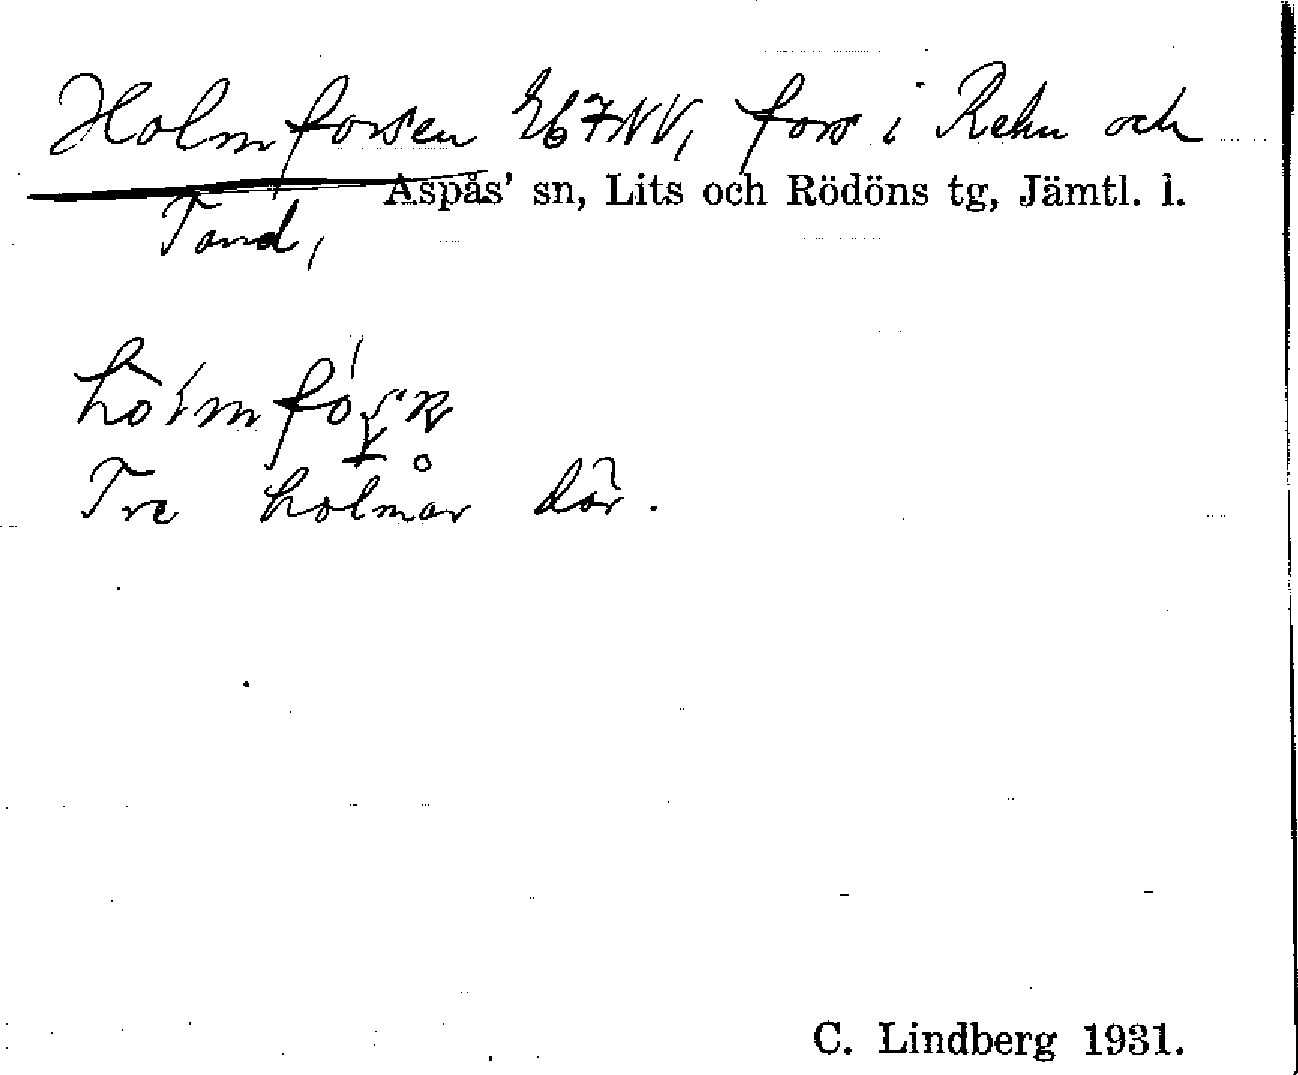 Holmforsen Eb7NV, fors i Rehn och
Aspås' sn, Lits och Rödöns tg, Jämtl. l.
Tand,
Tre holmar där.
C. Lindberg 1931.